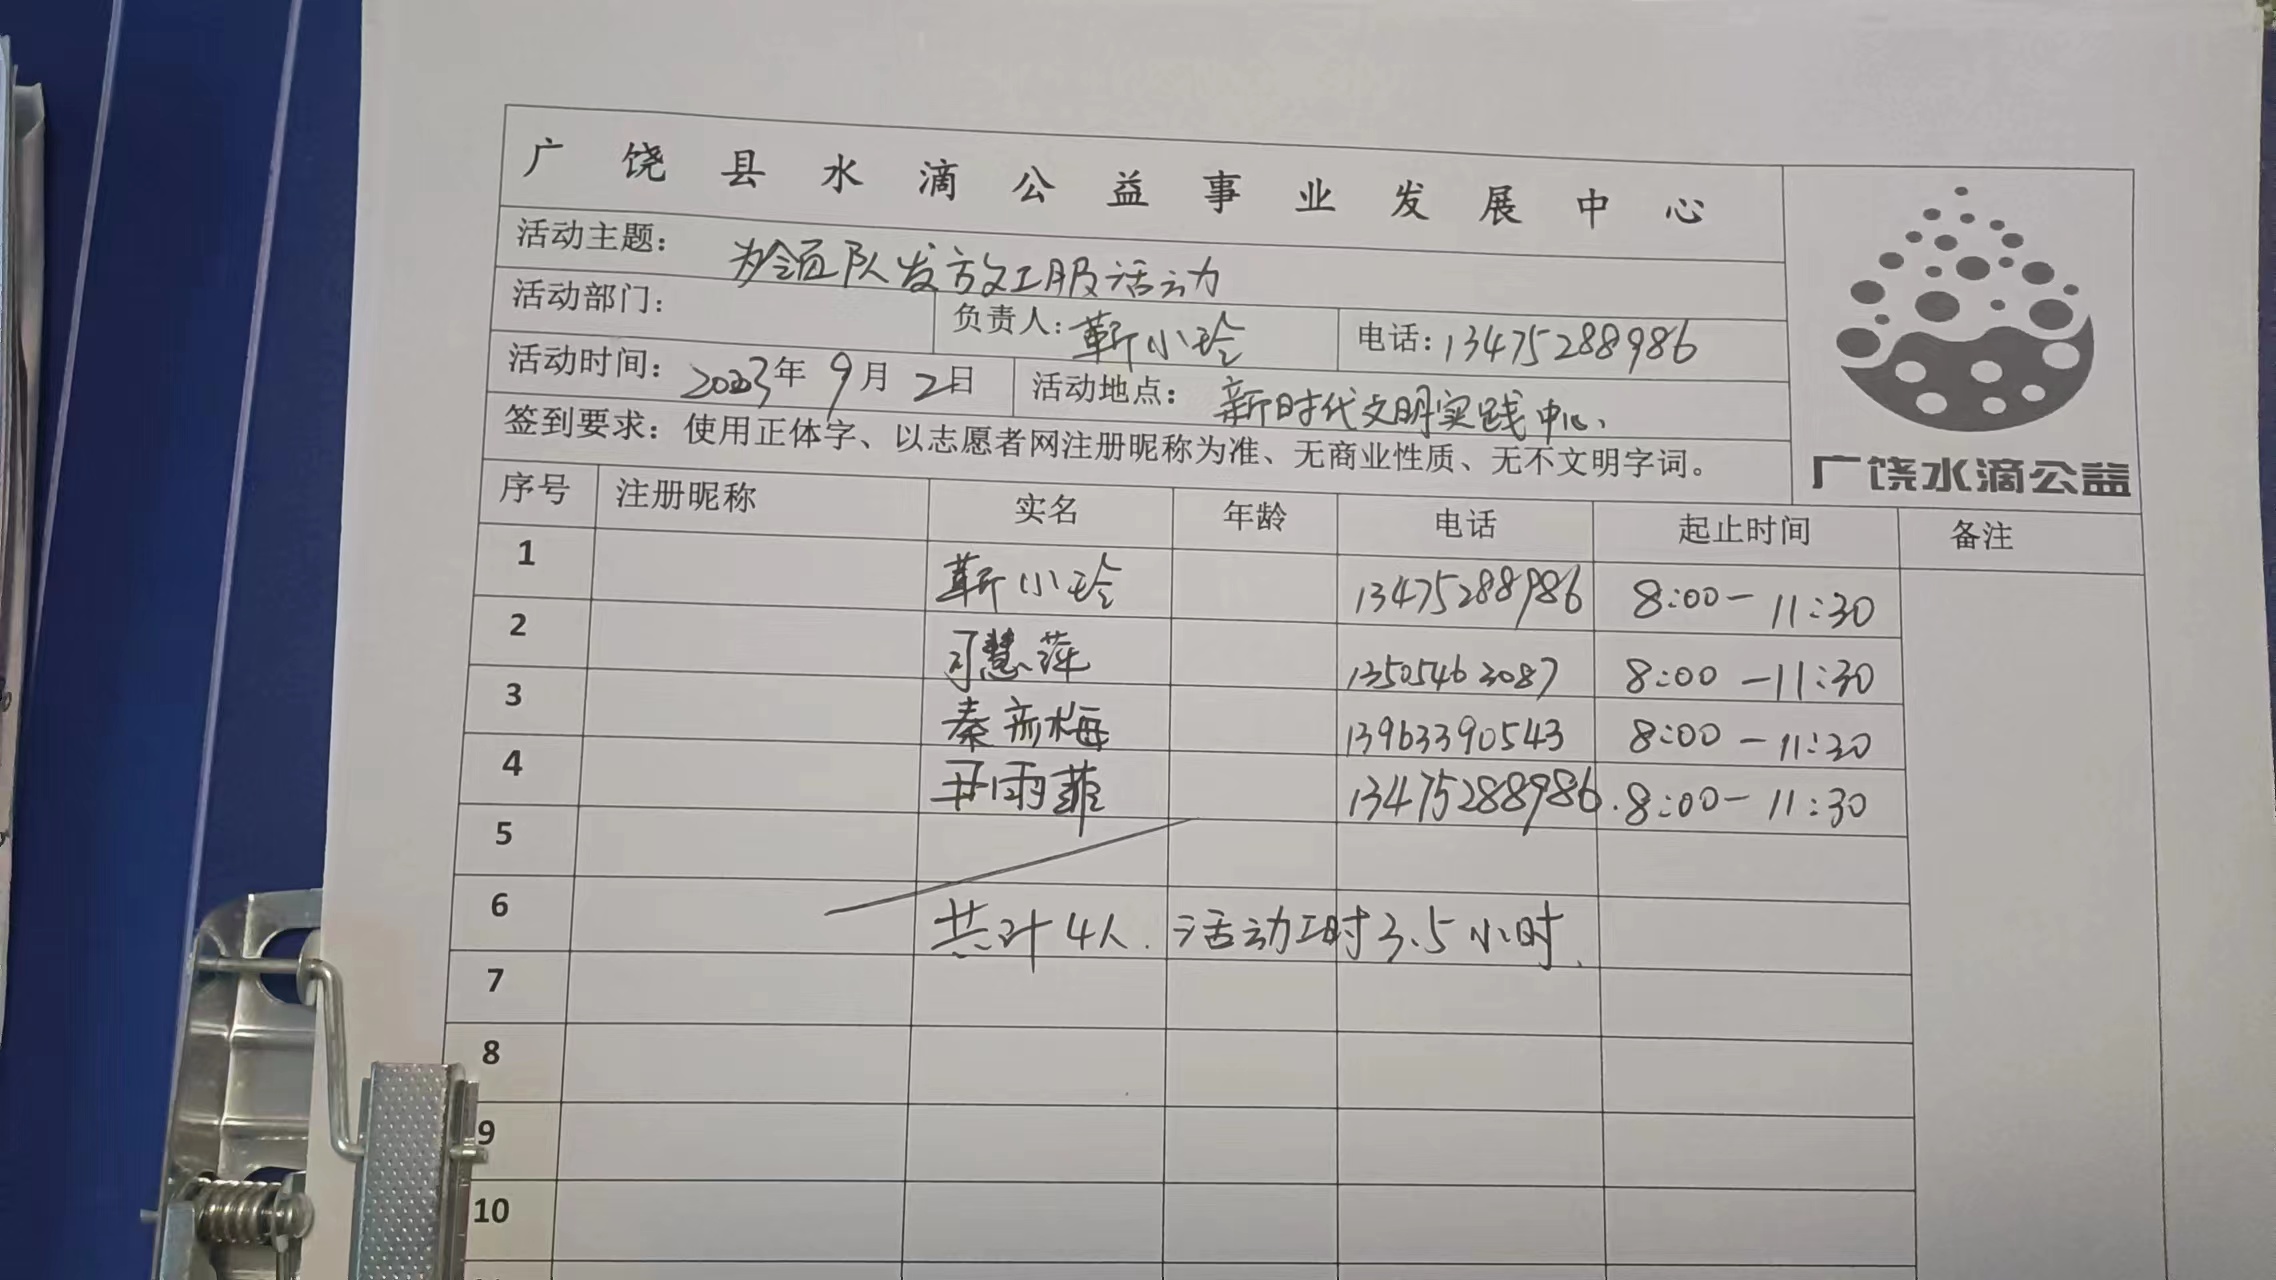 广饶县水滴公益事业发展中心
活动主题：为领队发放工服活动
活动部门： 负责人：靳小玲 电话：13475288986
活动时间：2023年9月2日 活动地点：新时代文明实践中心、
签到要求：使用正体字、以志愿者网注册昵称为准、无商业性质、无不文明字词。
广饶水滴公益
序号 注册昵称 实名 年龄 电话 起止时间 备注
1 靳小玲 13475288986 8:00-11:30
2 慧萍 13505463087 8:00-11:30
3 秦梅 13963390543 8:00-11:30
4 雨菲 13475288986. 8:00-11:30
5
6 共计4人. 活动工时3.5小时.
7
8
9
10